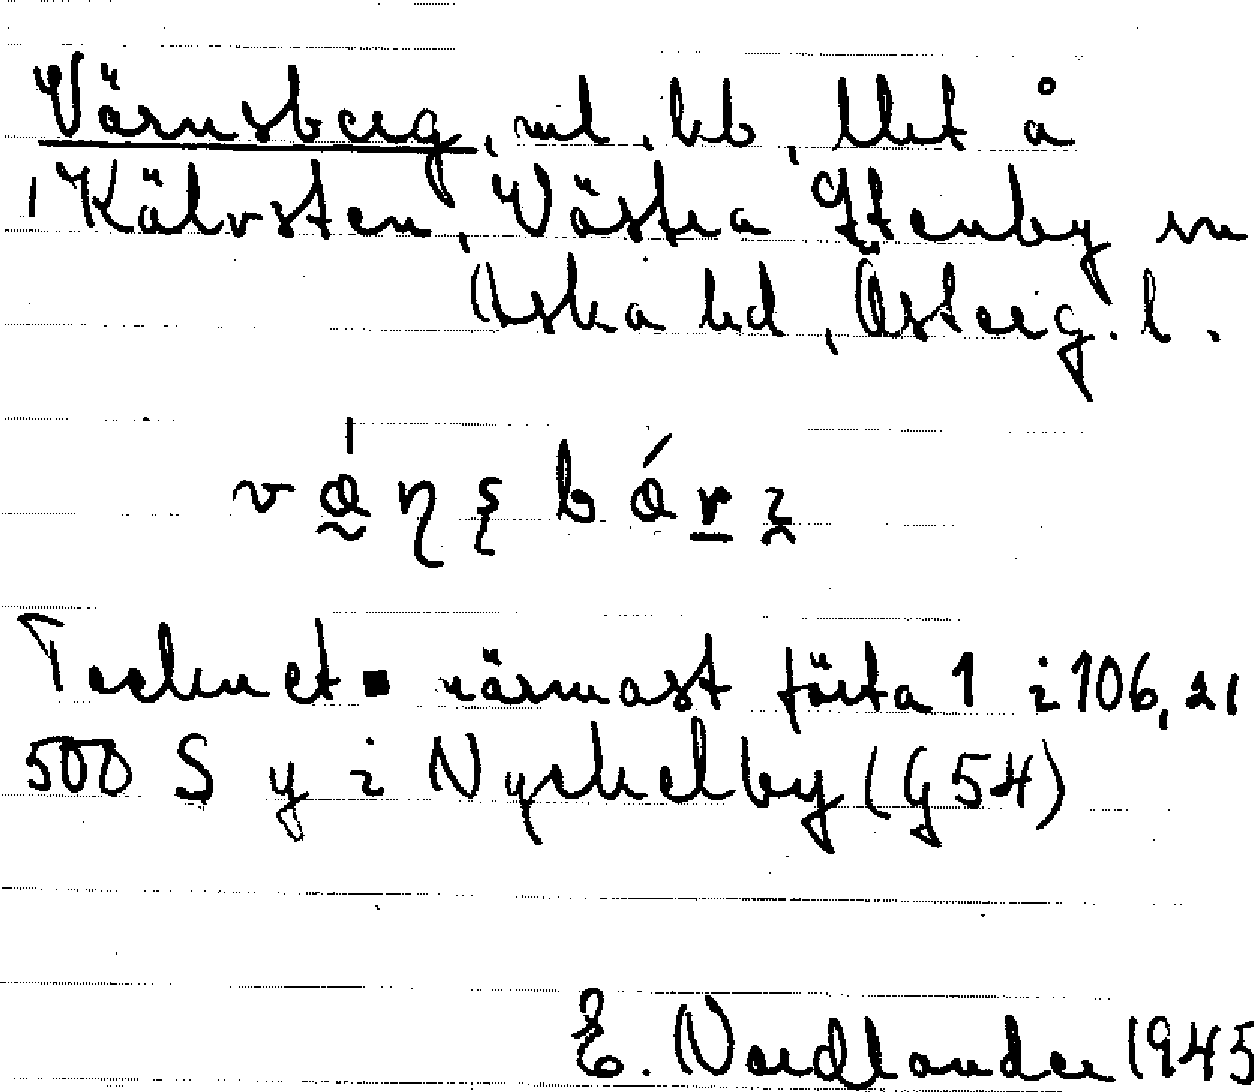 Värnsberg, ml. hb, Uet å
1 Kälvsten, Västra Stenby sn
Aska hd, Österg. l.
Tecknet ▪ närmast förta 1 i 106, 21
500 S y i Nyckelby (G54)
E. Nordlander 1945